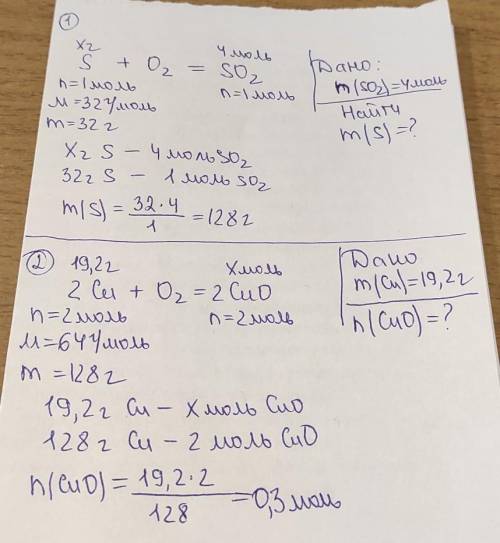 1
х г 4 моль
S + O₂ = SO₂
n=1моль n=1моль
M=32г/моль
m=32г
Дано:
m(SO₂)=4моль
Найти
m(S)=?
х г S – 4 моль SO₂
32г S – 1 моль SO₂
m(S) = 32·4 / 1 = 128г
2
19,2г х моль
2 Cu + O₂ = 2 CuO
n=2моль n=2моль
M=64г/моль
m=128г
Дано
m(Cu)=19,2г
n(CuO)=?
19,2г Cu – х моль CuO
128г Cu – 2 моль CuO
n(CuO) = 19,2·2 / 128 = 0,3 моль